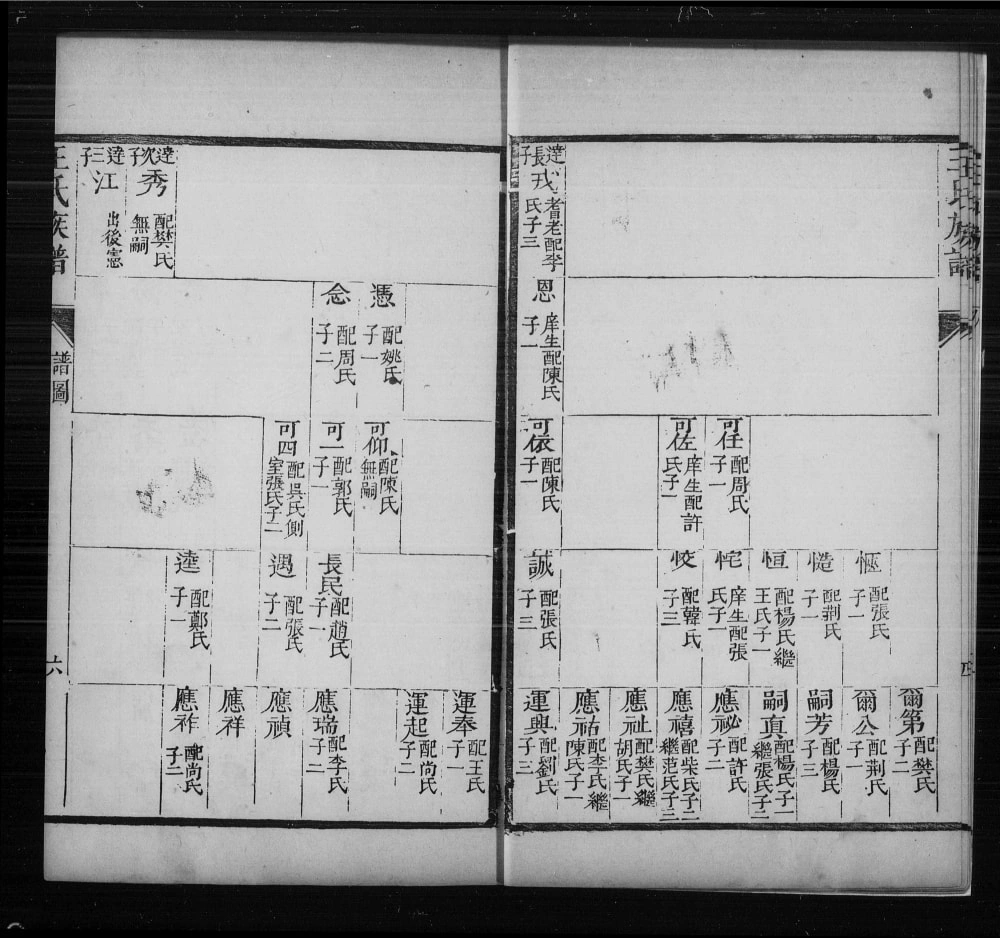 王氏族譜
爾第 配樊氏
子二
爾公 配荆氏
子一
配張氏
子一
嗣芳 配楊氏
子三
慥 配荆氏
子一
嗣真 配楊氏子一
繼張氏子二
恒 配楊氏繼
王氏子一
應祕 配許氏
子二
庠生配張
氏子一
可任 配周氏
子一
應禧 配柴氏子二
繼范氏子三
恔 配韓氏
子三
可佐 庠生配許
氏子一
應祉 配樊氏繼
胡氏子一
應祐 配李氏繼
陳氏子一
達長子
戎 耆老配李
氏子三
恩 庠生配陳氏
子一
可依 配陳氏
子一
誠 配張氏
子三
運興 配劉氏
子三
運奉 配王氏
子一
運起 配尚氏
子二
憑 配姚氏
子一
可仰 配陳氏
無嗣
念 配周氏
子二
可一 配郭氏
子一
長民 配趙氏
子一
應瑞 配李氏
子二
可四 配吳氏側
室張氏子二
遇 配張氏
子二
應禎
應祥
逵 配鄭氏
子一
應祚 配尚氏
子二
達次子
秀 配樊氏
無嗣
達三子
江 出後憲
王氏族譜
譜圖
六